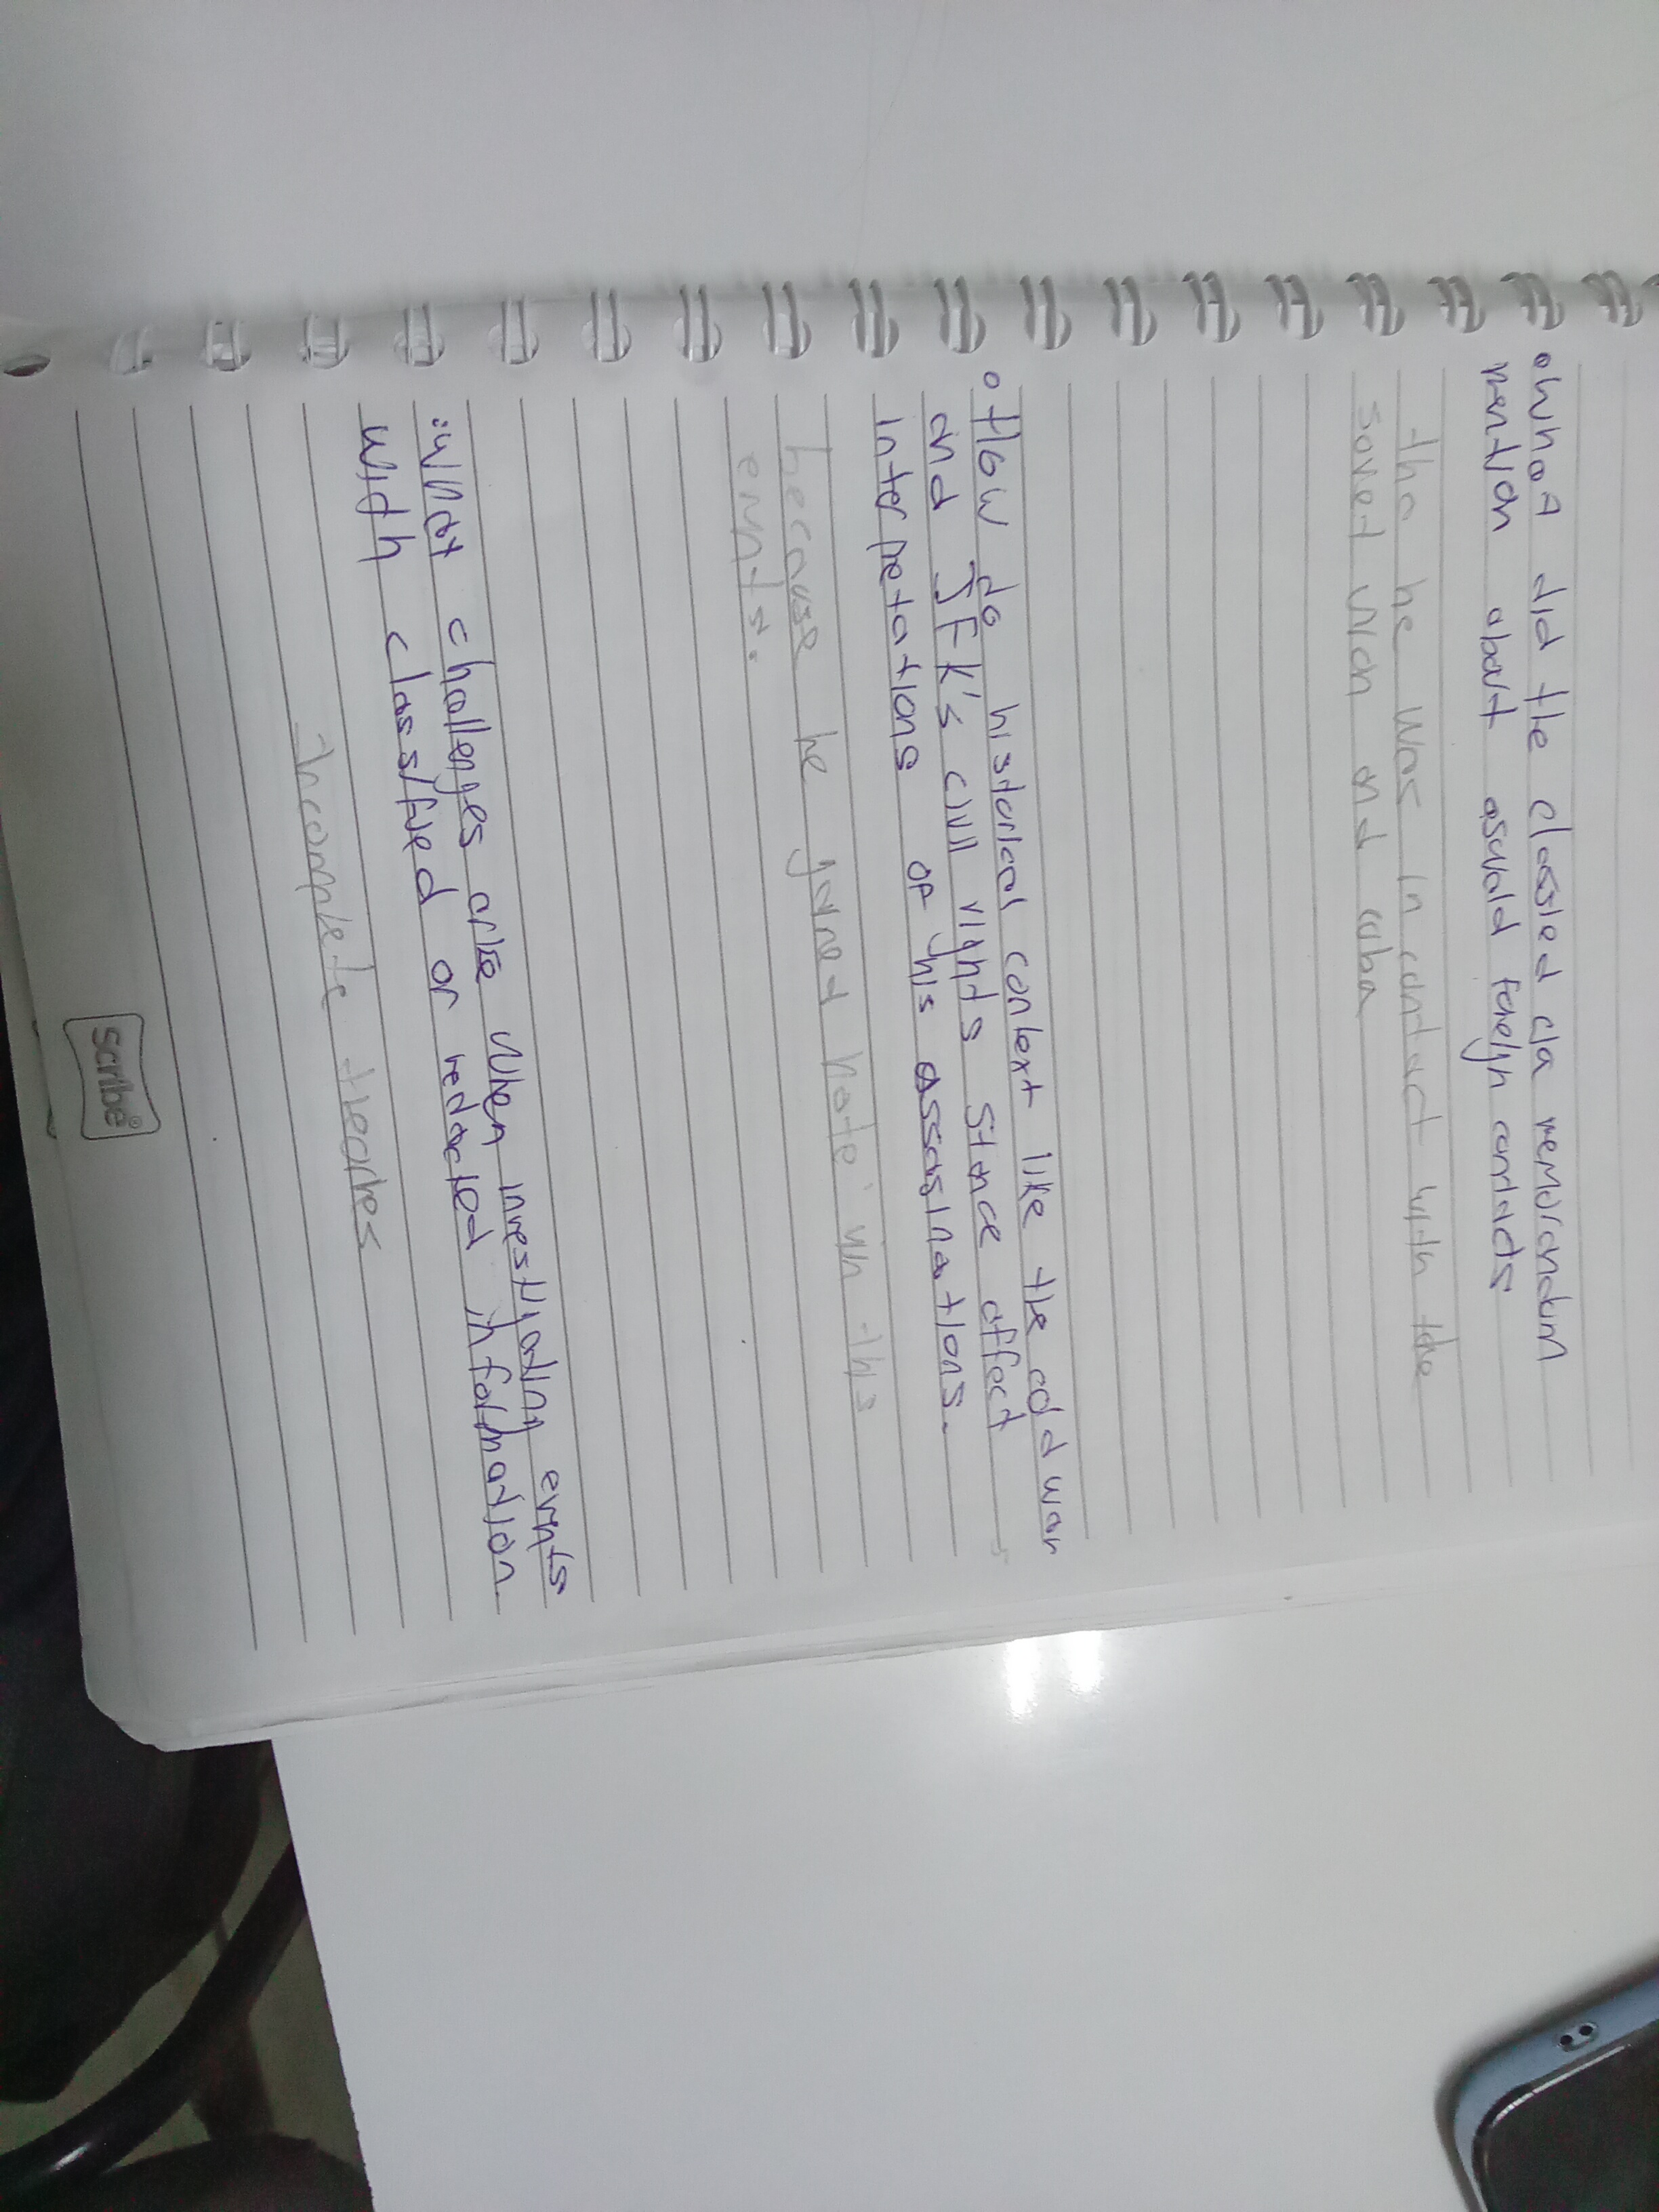 • What did the classied cia memorandum
mention about oswald foreign contacts
tha he was in contact with the
soviet union and cuba
• How do historical context like the cold war
and JFK's civil rights stance affect
interpretations of his assassinations.
because he gained hate in this
events.
• What challenges arise when investigating events
with classified or redacted information.
- Incomplete
scribe